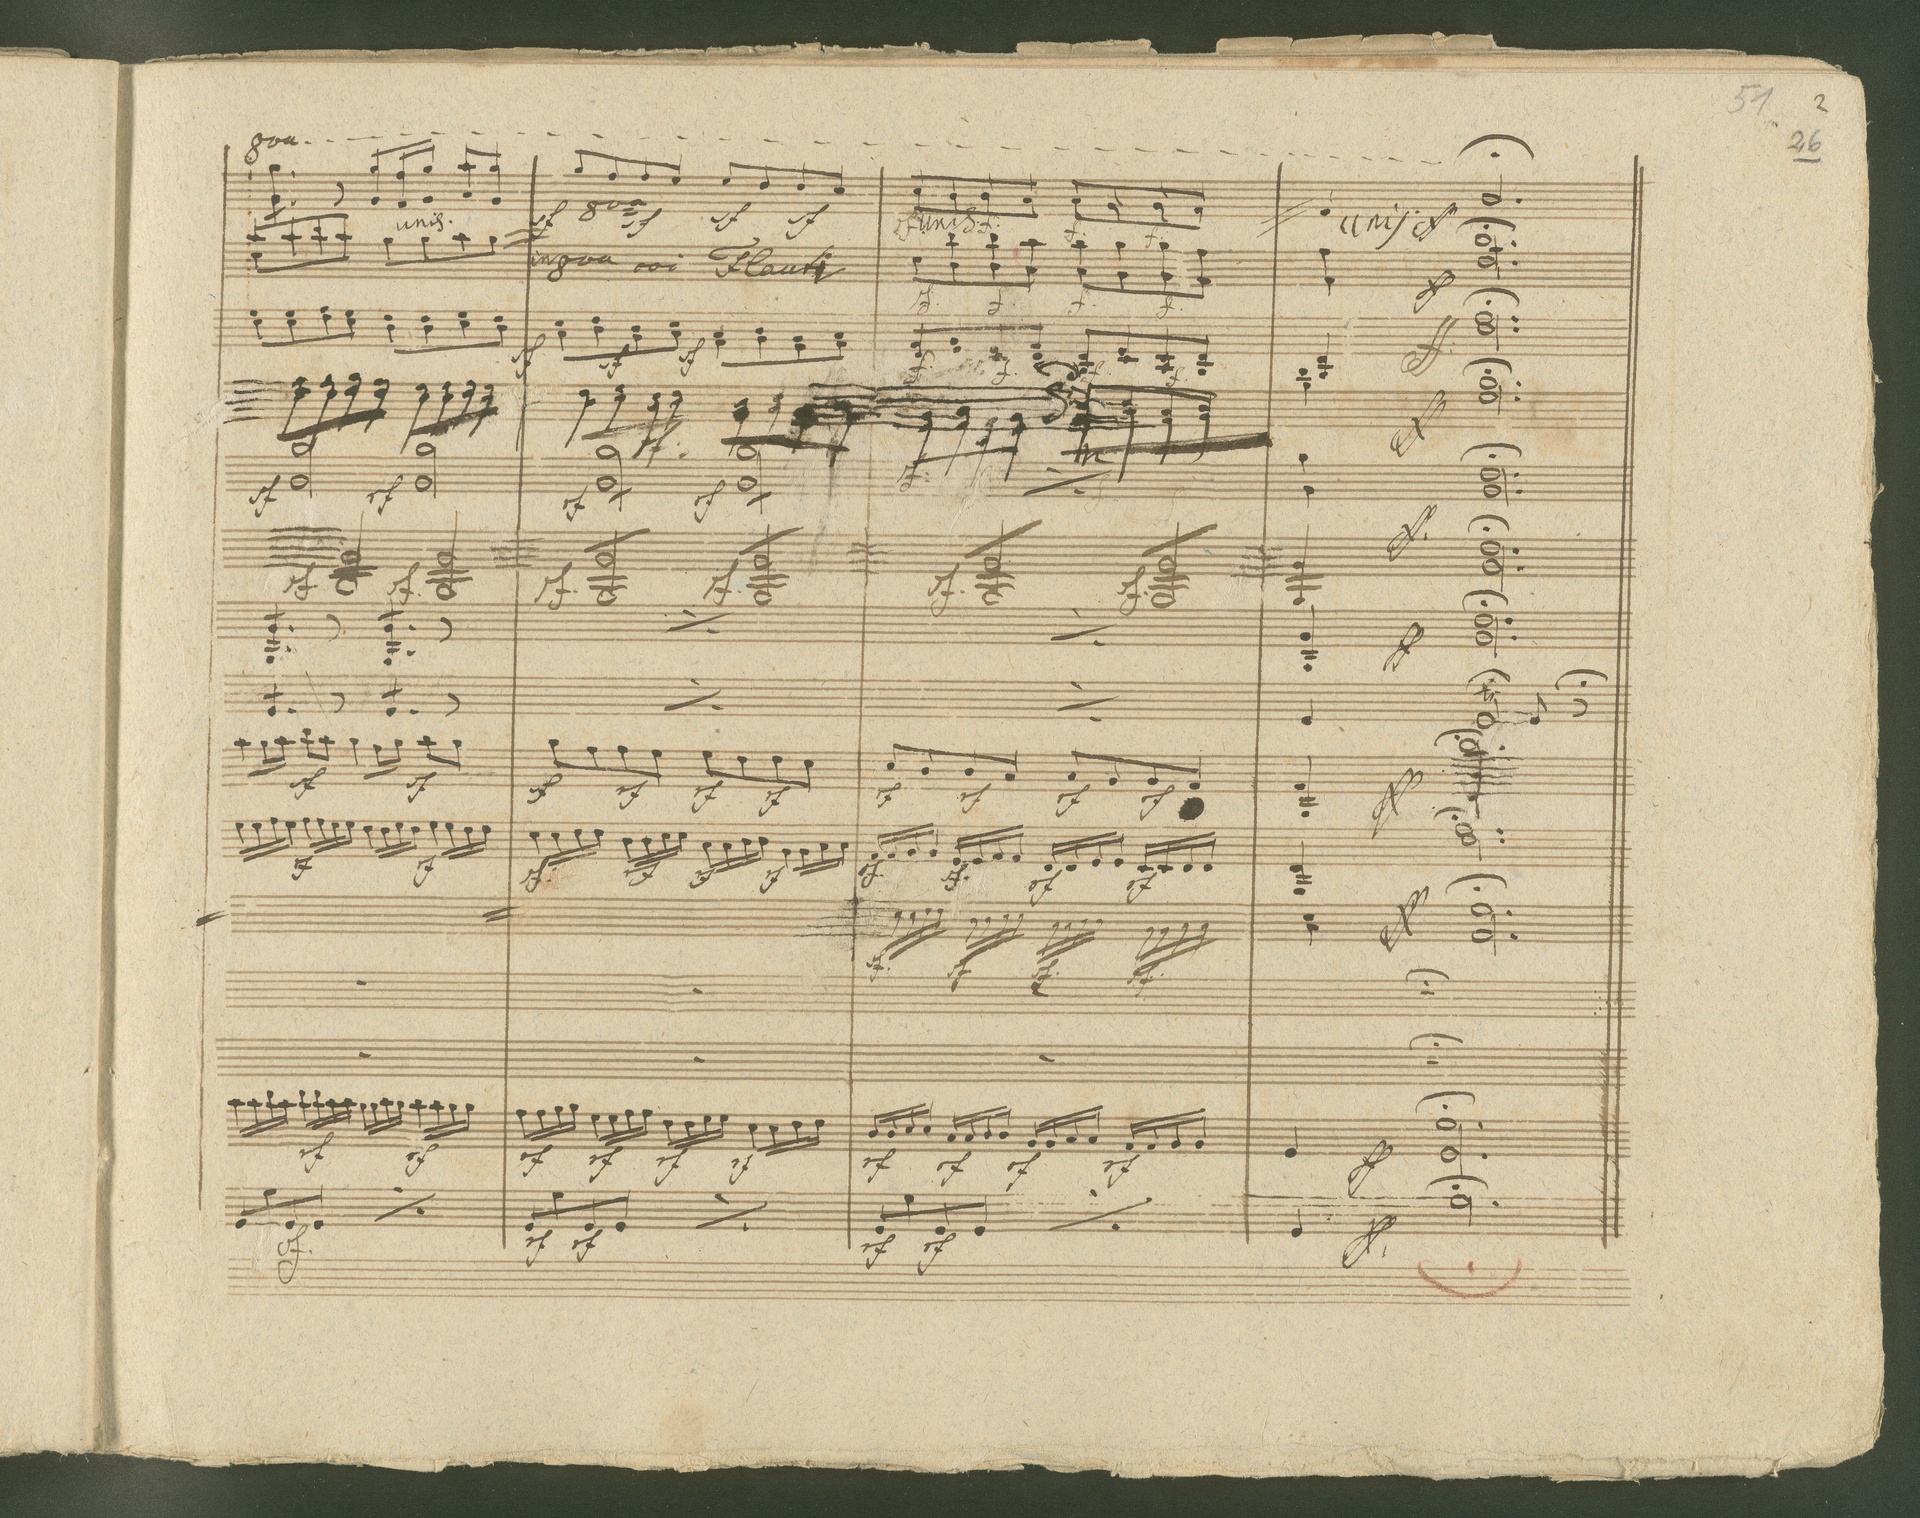 51 2
26
8va
unis.
sf 8va sf sf sf
sf unis. f.
f. f.
unis. ff
in 8va coi Flauti
ff
sf. f. f. f.
sf sf sf
ff.
f. f. f. f.
sf.
ff
sf sf sf sf
f.
ff.
sf. sf. sf. sf. sf. sf.
ff
tr
sf sf sf sf sf sf sf sf sf sf
ff
sf sf sf. sf sf sf sf. sf. sf sf
sf. sf. sf. sf.
ff
sf sf sf sf sf sf sf sf sf sf
ff
sf. sf sf sf sf
ff.